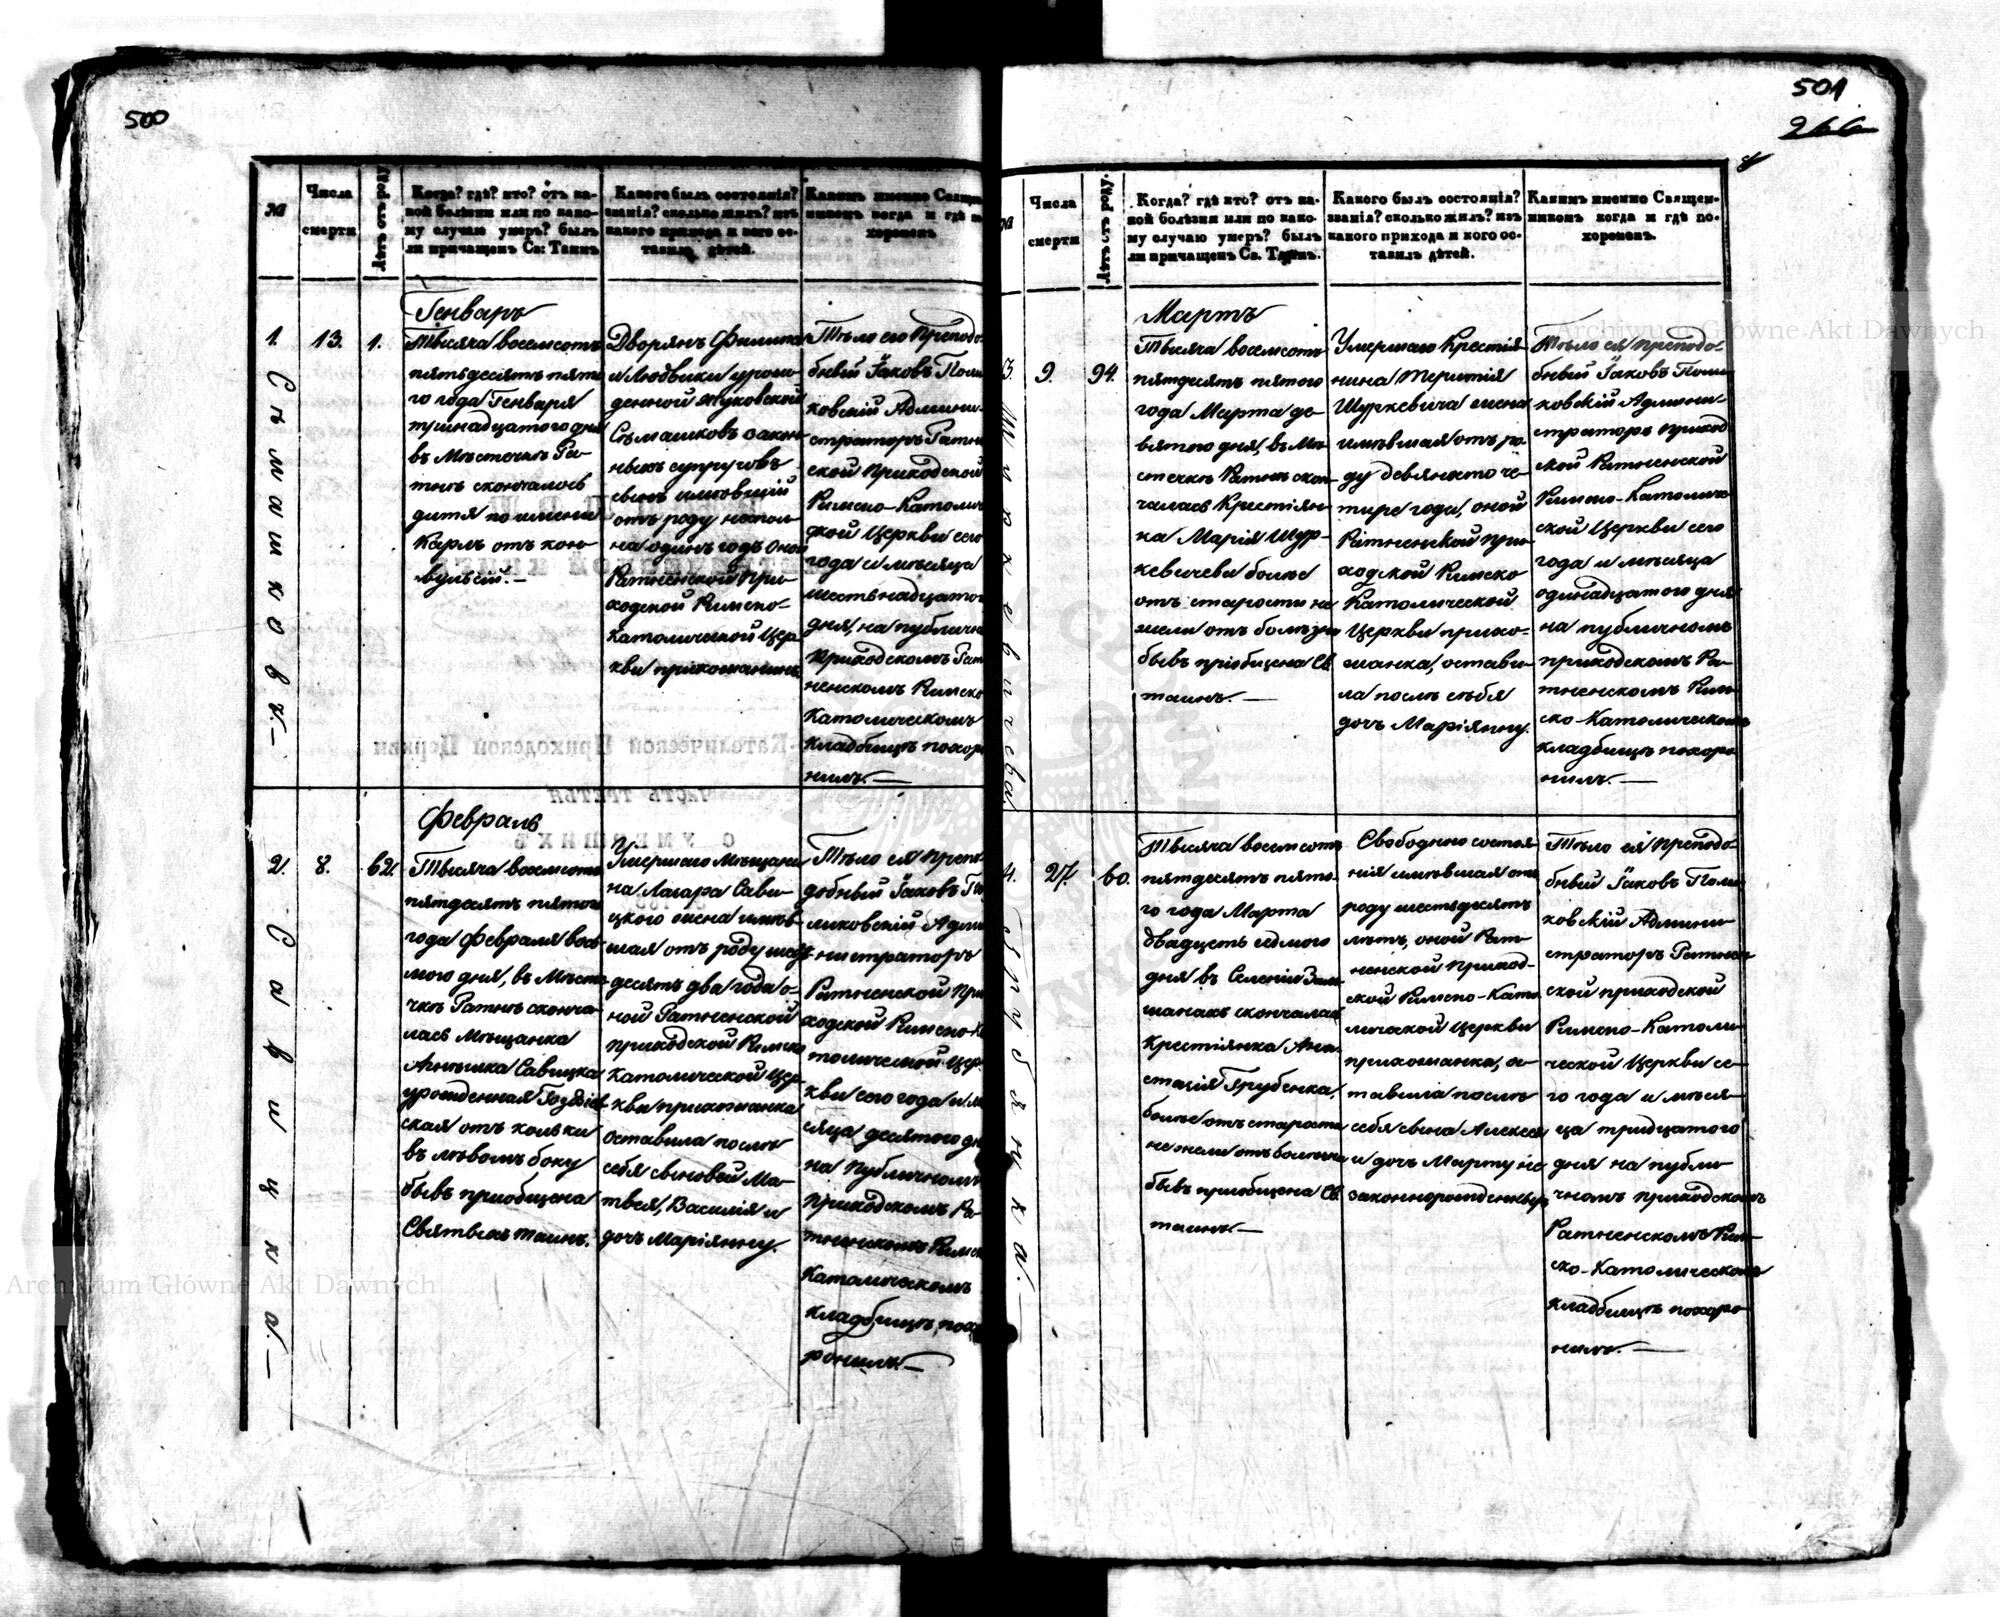 500
№
Числа
смерти
Лѣтъ отъ роду.
Когда? гдѣ? кто? отъ ка-
кой болѣзни или по како-
му случаю умеръ? былъ
ли причащенъ Св: Таинъ
Какого былъ состоянія?
званія? сколько жилъ? изъ
какого прихода и кого ос-
тавилъ дѣтей.
Какимъ именно Священ
никомъ когда и гдѣ по
хороненъ
1.
13.
1.
Сѣмашковъ.—
Генварь
Тысяча восемсотъ
пятьдесятъ пято
го года Генваря
тринадцатого дня
въ Мѣстечкѣ Ра-
тнѣ скончалось
дитя по имени
Карлъ отъ кон-
вульсій.—
Дворянъ Филипа
и Людвики урож-
денной Жуковской
Сѣмашковъ закон-
ныхъ супруговъ
сынъ имѣвшій
отъ роду непол-
на одинъ годъ оной
Ратненской При-
ходской Римско-
Католической Цер-
кви прихожанинъ
Тѣло его Преподо
бный Іаковъ Поли
ковскій Админи-
страторъ Ратне
ской Приходской
Римско-Католиче
ской Церкви сего
года и мѣсяца
шестьнадцатого
дня, на публично
Приходскомъ Рат
ненскомъ Римско
Католическомъ
кладбищѣ похоро
нилъ.—
2.
8.
62.
Савицка.—
Февраль
Тысяча восемсотъ
пятдесятъ пятого
года Февраля вось
мого дня, въ Мѣсте
чкѣ Ратнѣ сконча
лась Мѣщанка
Агнѣшка Савицка
урожденная
ская отъ кольки
въ лѣвомъ боку
бывъ приобщена
Святыхъ таинъ.
Умершаго Мѣщани
на Лазара Сави-
цкого жена имѣв-
шая отъ роду шесть
десятъ два года о-
ной Ратненской
приходской Римско
Католической Цер-
кви прихожанка
оставила послѣ
себя сыновей Ма-
твея, Василія и
дочь Маріянну.
Тѣло ея Препо
добный Іаковъ По
ликовскій Адми
нистраторъ
Ратненской При
ходской Римско-Ка
толической Цер
кви сего года и мѣ
сяца десятого дня
на публичномъ
приходскомъ Ра-
тненскомъ Римск
Католическомъ
кладбищѣ похо
ронилъ.—
501
266
№
Числа
смерти
Лѣтъ отъ роду.
Когда? гдѣ кто? отъ ка-
кой болѣзни или по како-
му случаю умеръ? былъ
ли причащенъ Св. Таинъ.
Какого былъ состоянія?
званія? сколько жилъ? изъ
какого прихода и кого ос-
тавилъ дѣтей.
Какимъ именно Священ-
никомъ когда и гдѣ по-
хороненъ.
3.
9.
94.
Шуркевичева.
Мартъ
Тысяча восемсотъ
пятдесятъ пятого
года Марта де-
вятого дня, въ Мѣ
стечкѣ Ратнѣ скон-
чалась Крестіян-
на Марія Шур-
кевичева болѣе
отъ старости не
жели отъ болѣзни
бывъ пріобщена Св.
таинъ.—
Умершаго Крестія-
нина Терентія
Шуркевича жена
имѣвшая отъ ро
ду девяносто че-
тире года, оной
Ратненской при
ходской Римско
Католической
Церкви прихо-
жанка, остави-
ла послѣ себя
дочь Маріянну.
Тѣло ея преподо-
бный Іаковъ Поли
ковскій Админи-
страторъ приход
ской Ратненской
Римско-Католиче
ской Церкви сего
года и мѣсяца
одинадцатого дня
на публичномъ
приходскомъ Ра-
тненскомъ Рим-
ско-Католическомъ
кладбищѣ похоро
нилъ.—
4.
27.
60.
Грубенка.—
Тысяча восемсотъ
пятдесятъ пято-
го года Марта
двадцеть седмого
дня въ Селеніи
скончалась
Крестіянка Ана-
стасія Грубенка,
болѣе отъ старости
нежели отъ болѣзни
бывъ приобщена Св.
таинъ—
Свободного состоя-
нія имѣвшая отъ
роду шестьдесятъ
лѣтъ, оной Рат-
ненской приход-
ской Римско-Като
лической Церкви
прихожанка, ос
тавила послѣ
себя сына Алексея
и дочь Марту не
законнорожденныхъ
Тѣло ея преподо-
бный Іаковъ Поли
ковскій Админи
страторъ Ратнен
ской приходской
Римско-Католи
ческой Церкви се-
го года и мѣся-
ца тридцатого
дня на публи
чномъ приходскомъ
Ратненскомъ Рим-
ско-Католическомъ
кладбищѣ похоро
нилъ.—
Archiwum Główne Akt Dawnych
Archiwum Główne Akt Dawnych